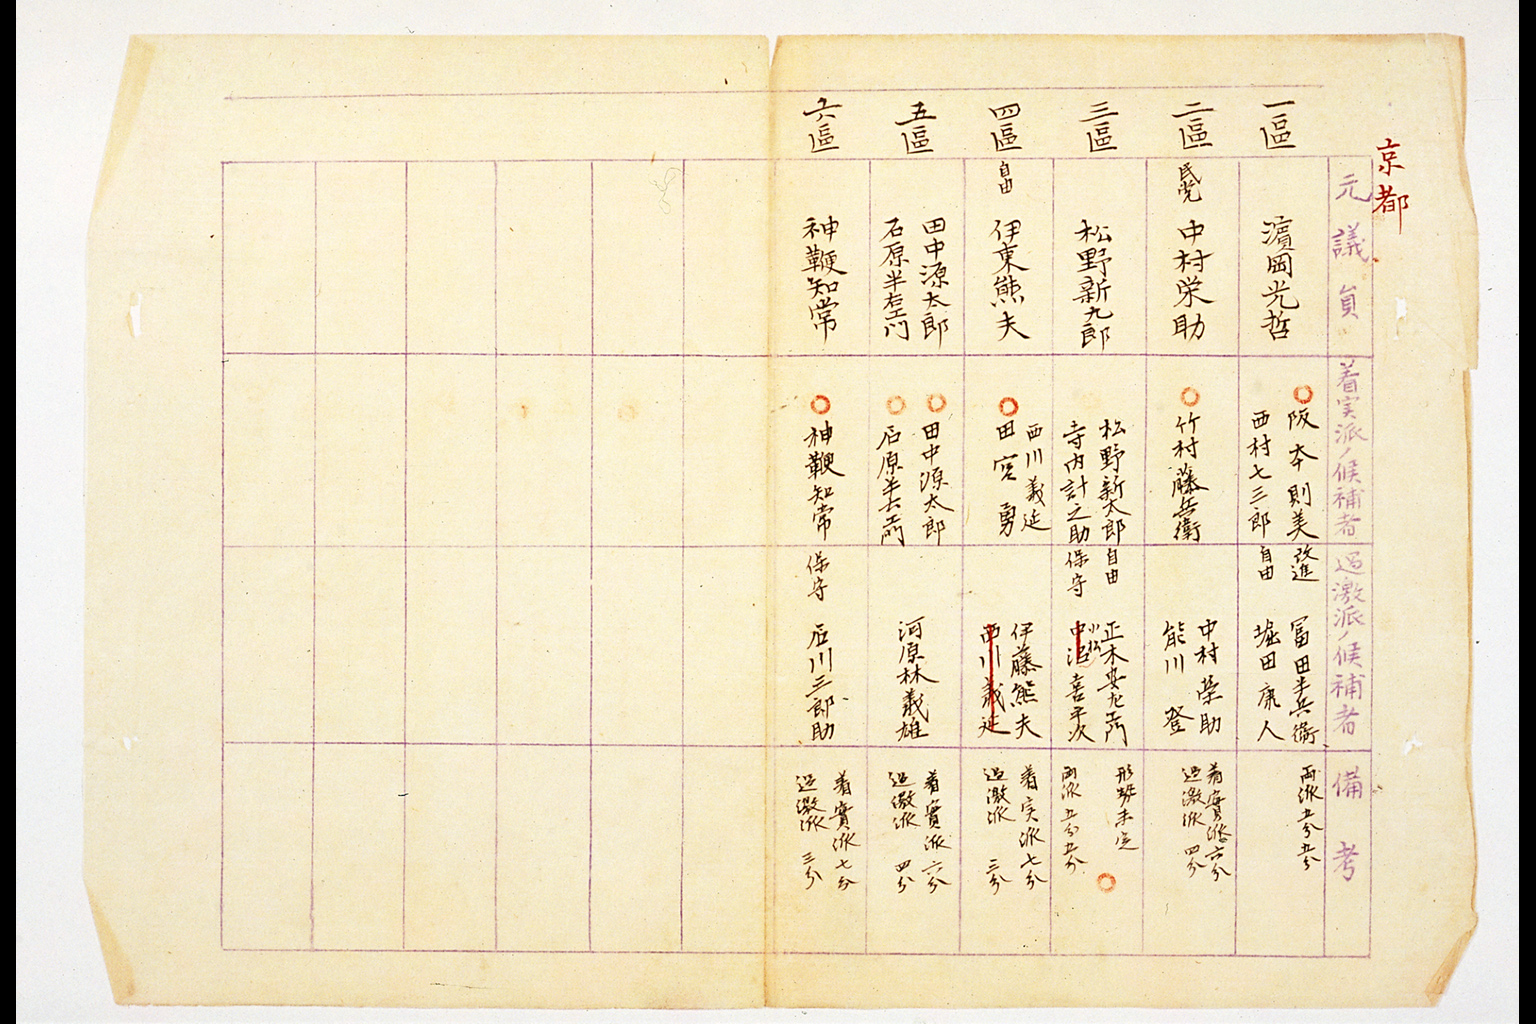 京都
元議員
着実派ノ候補者
過激派ノ候補者
備考
一區
濵岡光哲
阪本則美
西村七三郎
改進
自由
冨田半兵衛
堀田康人
両派五分五分
二區
民党
中村栄助
竹村藤兵衛
中村栄助
能川登
着實派六分
過激派四分
三區
松野新九郎
松野新太郎
寺内計之助
自由
保守
正木安左エ門
中沼喜平次
小松
形勢未定
両派五分五分
四區
自由
伊東熊夫
西川義延
田宮勇
伊藤熊夫
西川義延
着実派七分
過激派三分
五區
田中源太郎
石原半左エ門
田中源太郎
石原半右エ門
河原林義雄
着實派六分
過激派四分
六區
神鞭知常
神鞭知常
保守
石川三郎助
着實派七分
過激派三分